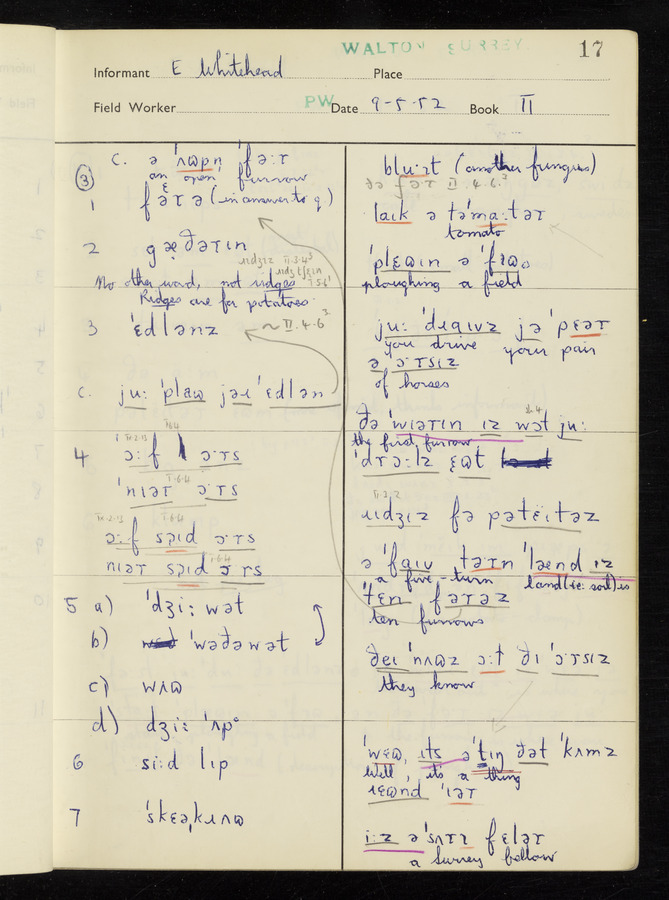 WALTON SURREY
17
Informant E Whitehead Place
Field Worker PW Date 9-5-52 Book II
③ c. ə ˈʌωpn ˈfəːɾ
an open furrow
1 fəɾə (in answer to q)
2 gæðəɾɪn
ɹɪdʒɪz II.3.4
No other word, not ridges
Ridges are for potatoes.
3 ˈɛdlənz ~ II.4.6³
c. juː ˈplaω jəɹ ˈɛdlən
4 ɔːf ɔɾs
ˈnɪəɾ ɔɾs
ɔːf spɪd ɔɾs
nɪəɾ spɪd ɔɾs
5 a) ˈdʒiː wət
b) ˈwəðəwət
c) wʌω
d) dʒiː ˈʌp
6 siːd lɪp
7 ˈskɛəˌkɹʌω
bluːɪt (another fungus)
ðə fəɾ II.4.6.³
laɪk ə təˈmaːtəɾ
tomato
ˈplɛωɪn ə ˈfɪω
ploughing a field
juː ˈdɹaɪvz jə ˈpɛəɾ
you drive your pair
ə ɔɾsɪz
of horses
ðə ˈwɪəɾɪn ɪz wət juː
the first furrow
ˈdɾɔːlz ɛωt
II.3.2
ɹɪdʒɪz fə pətɛɪtəz
ə ˈfaɪv təɾn ˈlænd ɪz
a five-turn land (ie: soil) is
ˈtɛn fəɾəz
ten furrows
ðeɪ ˈnʌωz ɔːt ðɪ ˈɔɾsɪz
they know
ˈwɛω, ɪts ə ˈtɪŋ ðət ˈkʌmz
Well, it's a thing
ɹɛωnd ˈɪəɾ
iːz ə ˈsʌɾɪ fɛləɾ
a Surrey fellow